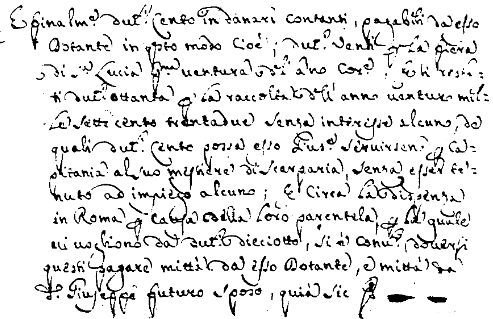 E finalm.te dul.ti Cento in danari Contanti, pagabili da esso
Dotante in q.sto modo Cioè; dul.ti Venti p la fiera
di S.ta Lucia p.ma ventura d.l año Cor.te E li resta-
ti dul.ti ottanta p la raccolta d.l anno venturo mil-
le sette cento trentadue senza interesse alcuno, de
quali dul.ti Cento possa esso Gius.e servirsene p Ca-
pitania al suo mestiere di scarparia, senza esser te-
nuto ad impiego alcuno; E Circa la dispenza
in Roma p causa della loro parentela, p la quale
ci vogliono da dul.ti dieciotto, si è Conv.to doversi
questi pagare mittà da esso Dotante, e mittà da
d.o Giuseppe futuro sposo, quia sic